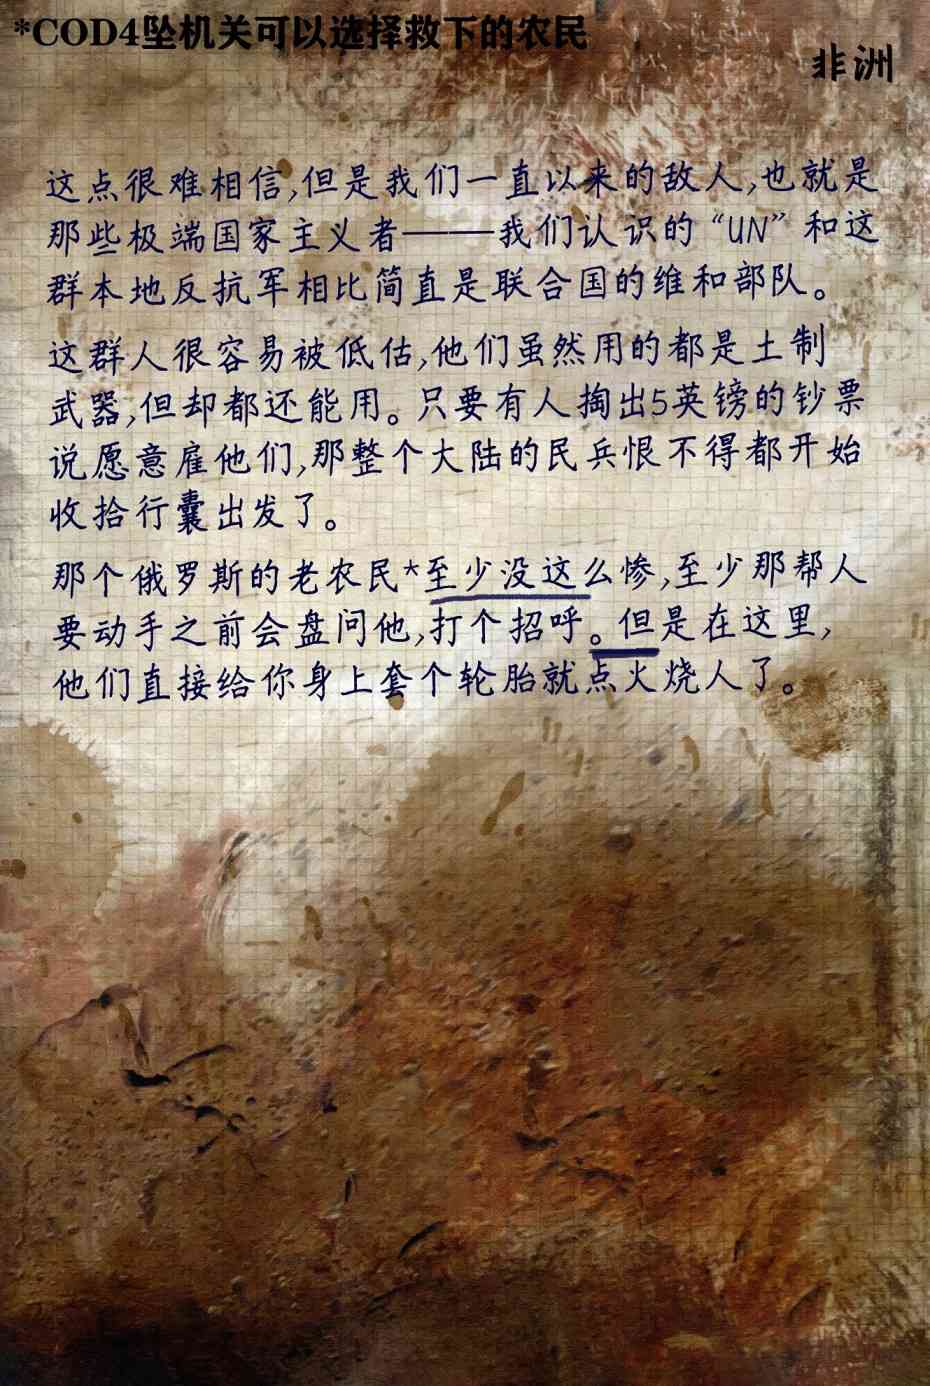 *COD4坠机关可以选择救下的农民
非洲
这点很难相信,但是我们一直以来的敌人,也就是
那些极端国家主义者——我们认识的“UN”和这
群本地反抗军相比简直是联合国的维和部队。
这群人很容易被低估,他们虽然用的都是土制
武器,但却都还能用。只要有人掏出5英镑的钞票
说愿意雇他们,那整个大陆的民兵恨不得都开始
收拾行囊出发了。
那个俄罗斯的老农民*至少没这么惨,至少那帮人
要动手之前会盘问他,打个招呼。但是在这里,
他们直接给你身上套个轮胎就点火烧人了。